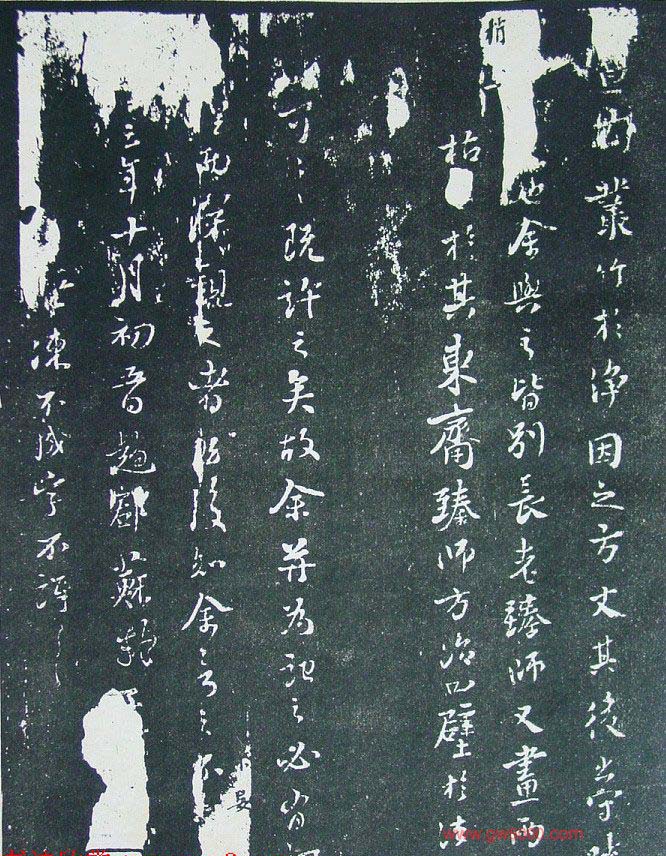 叢竹於淨因之方丈其後出守
也余與之皆別長老臻師又畫兩
梢一
枯於其東齋臻師方治四壁於法
可〻既許之矣故余并為記之必有
而深觀之者然後知余言之不
妄
三年十月初五日趙郡蘇軾
凍不成字不訝〻